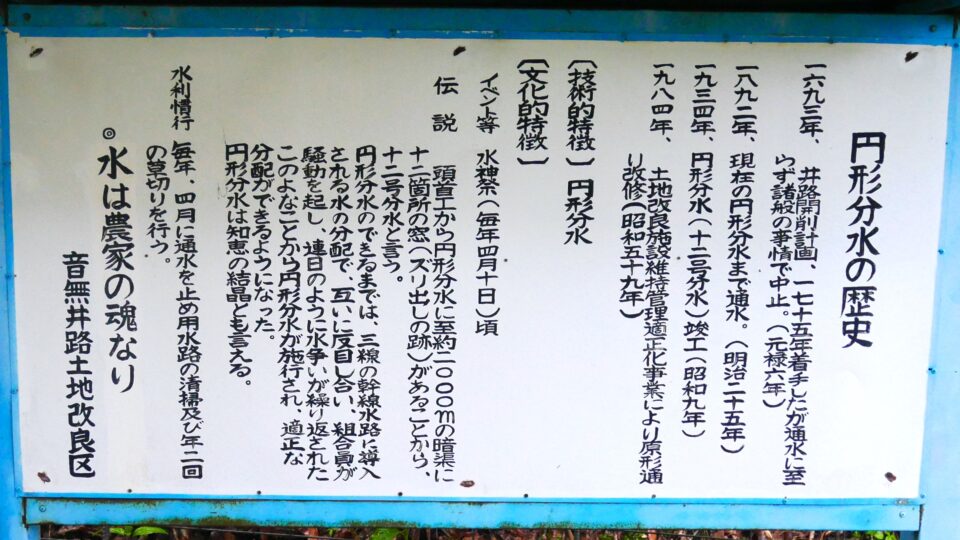 円形分水の歴史
一六九三年、井路開削計画、一七十五年着手したが通水に至
らず諸般の事情で中止。(元禄六年)
一八九二年、現在の円形分水まで通水。(明治二十五年)
一九三四年、円形分水(十二号分水)竣工(昭和九年)
一九八四年、土地改良施設維持管理適正化事業により原形通
り改修(昭和五十九年)
〔技術的特徴〕円形分水
〔文化的特徴〕
イベント等 水神祭(毎年四月十日)頃
伝説 頭首工から円形分水に至約二〇〇〇mの暗渠に
十二箇所の窓(ズリ出しの跡)があることから、
十二号分水と言う。
円形分水のできるまでは、三線の幹線水路に導入
される水の分配で、互いに反目し合い、組合員が
騒動を起し、連日のように水争いが繰り返された
このよなことから円形分水が施行され、適正な
分配ができるようになった。
円形分水は知恵の結晶とも言える。
水利慣行 毎年、四月に通水を止め用水路の清掃及び年二回
の草切りを行う。
◎水は農家の魂なり
音無井路土地改良区